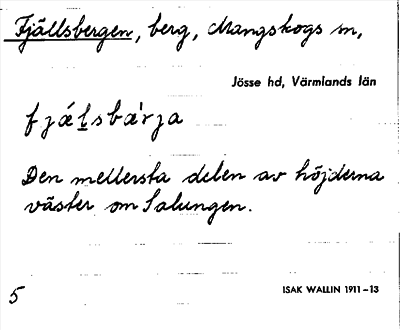 Fjällsbergen, berg, Mangskogs sn,
Jösse hd, Värmlands län
fjæ´ḻsbæ`rja
Den mellersta delen av höjderna
väster om Salungen.
5
ISAK WALLIN 1911–13